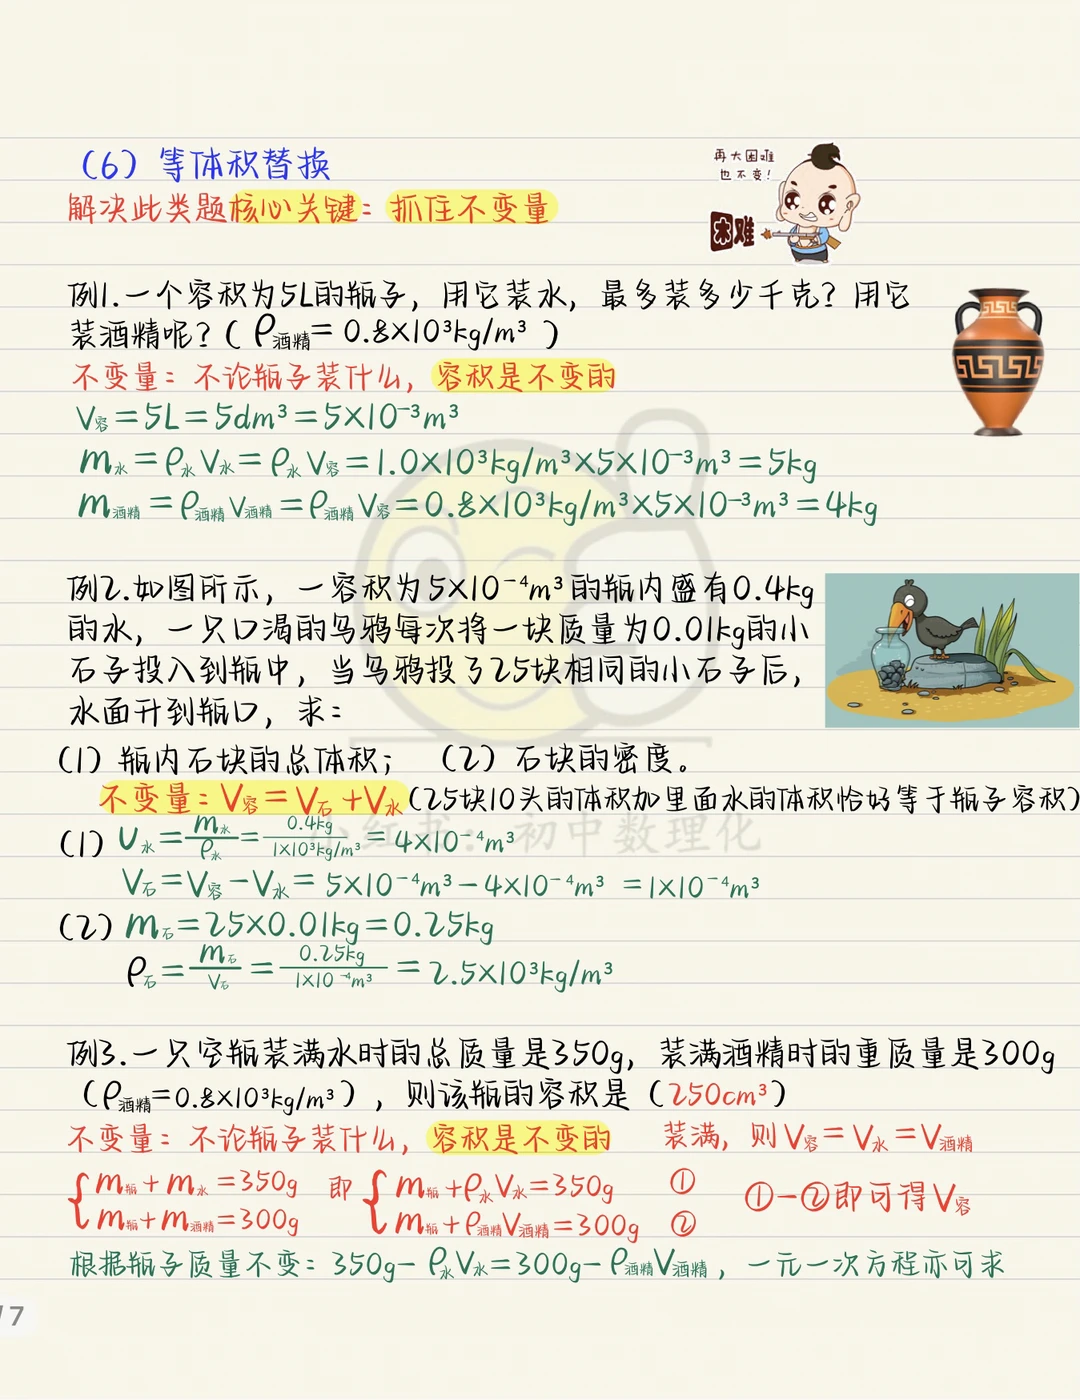 （6）等体积替换
再大困难
也不变！
解决此类题核心关键：抓住不变量
困难
例1.一个容积为5L的瓶子，用它装水，最多装多少千克？用它
装酒精呢？（ρ酒精=0.8×10³kg/m³）
不变量：不论瓶子装什么，容积是不变的
V容=5L=5dm³=5×10⁻³m³
m水=ρ水V水=ρ水V容=1.0×10³kg/m³×5×10⁻³m³=5kg
m酒精=ρ酒精V酒精=ρ酒精V容=0.8×10³kg/m³×5×10⁻³m³=4kg
例2.如图所示，一容积为5×10⁻⁴m³的瓶内盛有0.4kg
的水，一只口渴的乌鸦每次将一块质量为0.01kg的小
石子投入到瓶中，当乌鸦投了25块相同的小石子后，
水面升到瓶口，求：
（1）瓶内石块的总体积；（2）石块的密度。
不变量：V容=V石+V水（25块10头的体积加里面水的体积恰好等于瓶子容积）
（1）V水=m水/ρ水=0.4kg/1×10³kg/m³=4×10⁻⁴m³
小红书：初中数理化
V石=V容-V水=5×10⁻⁴m³-4×10⁻⁴m³=1×10⁻⁴m³
（2）m石=25×0.01kg=0.25kg
ρ石=m石/V石=0.25kg/1×10⁻⁴m³=2.5×10³kg/m³
例3.一只空瓶装满水时的总质量是350g，装满酒精时的重质量是300g
（ρ酒精=0.8×10³kg/m³），则该瓶的容积是（250cm³）
不变量：不论瓶子装什么，容积是不变的 装满，则V容=V水=V酒精
m瓶+m水=350g 即 m瓶+ρ水V水=350g ① ①-②即可得V容
m瓶+m酒精=300g m瓶+ρ酒精V酒精=300g ②
根据瓶子质量不变：350g-ρ水V水=300g-ρ酒精V酒精，一元一次方程亦可求
/7